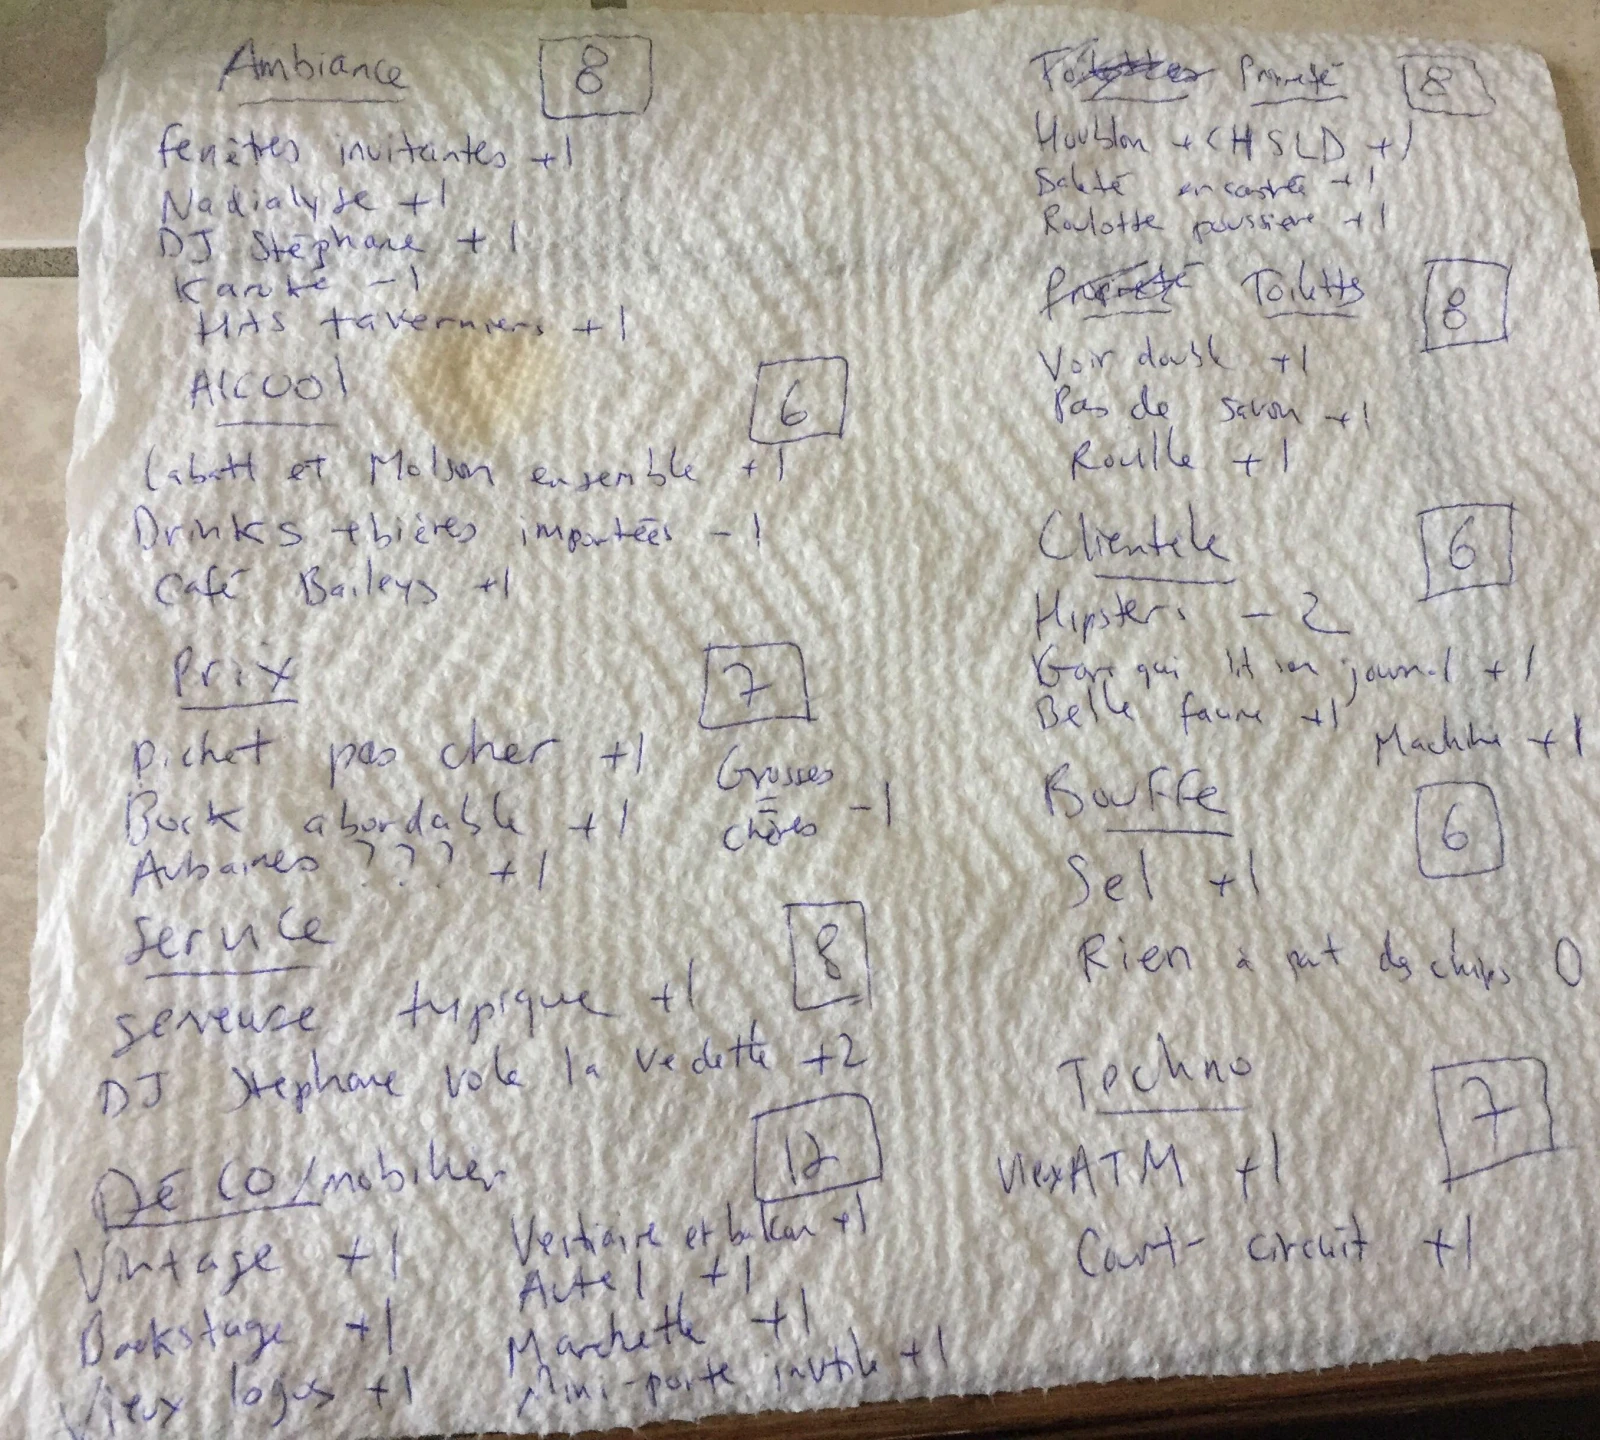 Ambiance 8
fenêtres invitantes +1
Nadialyse +1
DJ Stéphane +1
Karoké -1
HAS taverniers +1
Alcool 6
Labatt et Molson ensemble +1
Drinks + bières importées -1
Café Baileys +1
Prix 7
Pichet pas cher +1
Bock abordable +1
Aubaines ??? +1
Grosses = chères -1
Service 8
Serveuse typique +1
DJ Stephane vole la vedette +2
DÉCO/mobilier 12
Vintage +1
Backstage +1
Vieux logos +1
Vestiaire et balcon +1
Autel +1
Marchette +1
Mini-porte inutile +1
Toilettes Propreté 8
Houblon + CHSLD +1
Saleté encastrée +1
Roulotte poussière +1
Propreté Toiletts 8
Voir double +1
Pas de savon +1
Rouille +1
Clientèle 6
Hipsters -2
Gars qui lit son journal +1
Belle faune +1
Machine +1
Bouffe 6
Sel +1
Rien à part des chips 0
Techno 7
Vieux ATM +1
Court-circuit +1